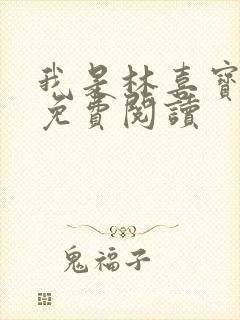 我是林喜寶
免費閱讀
鬼福子